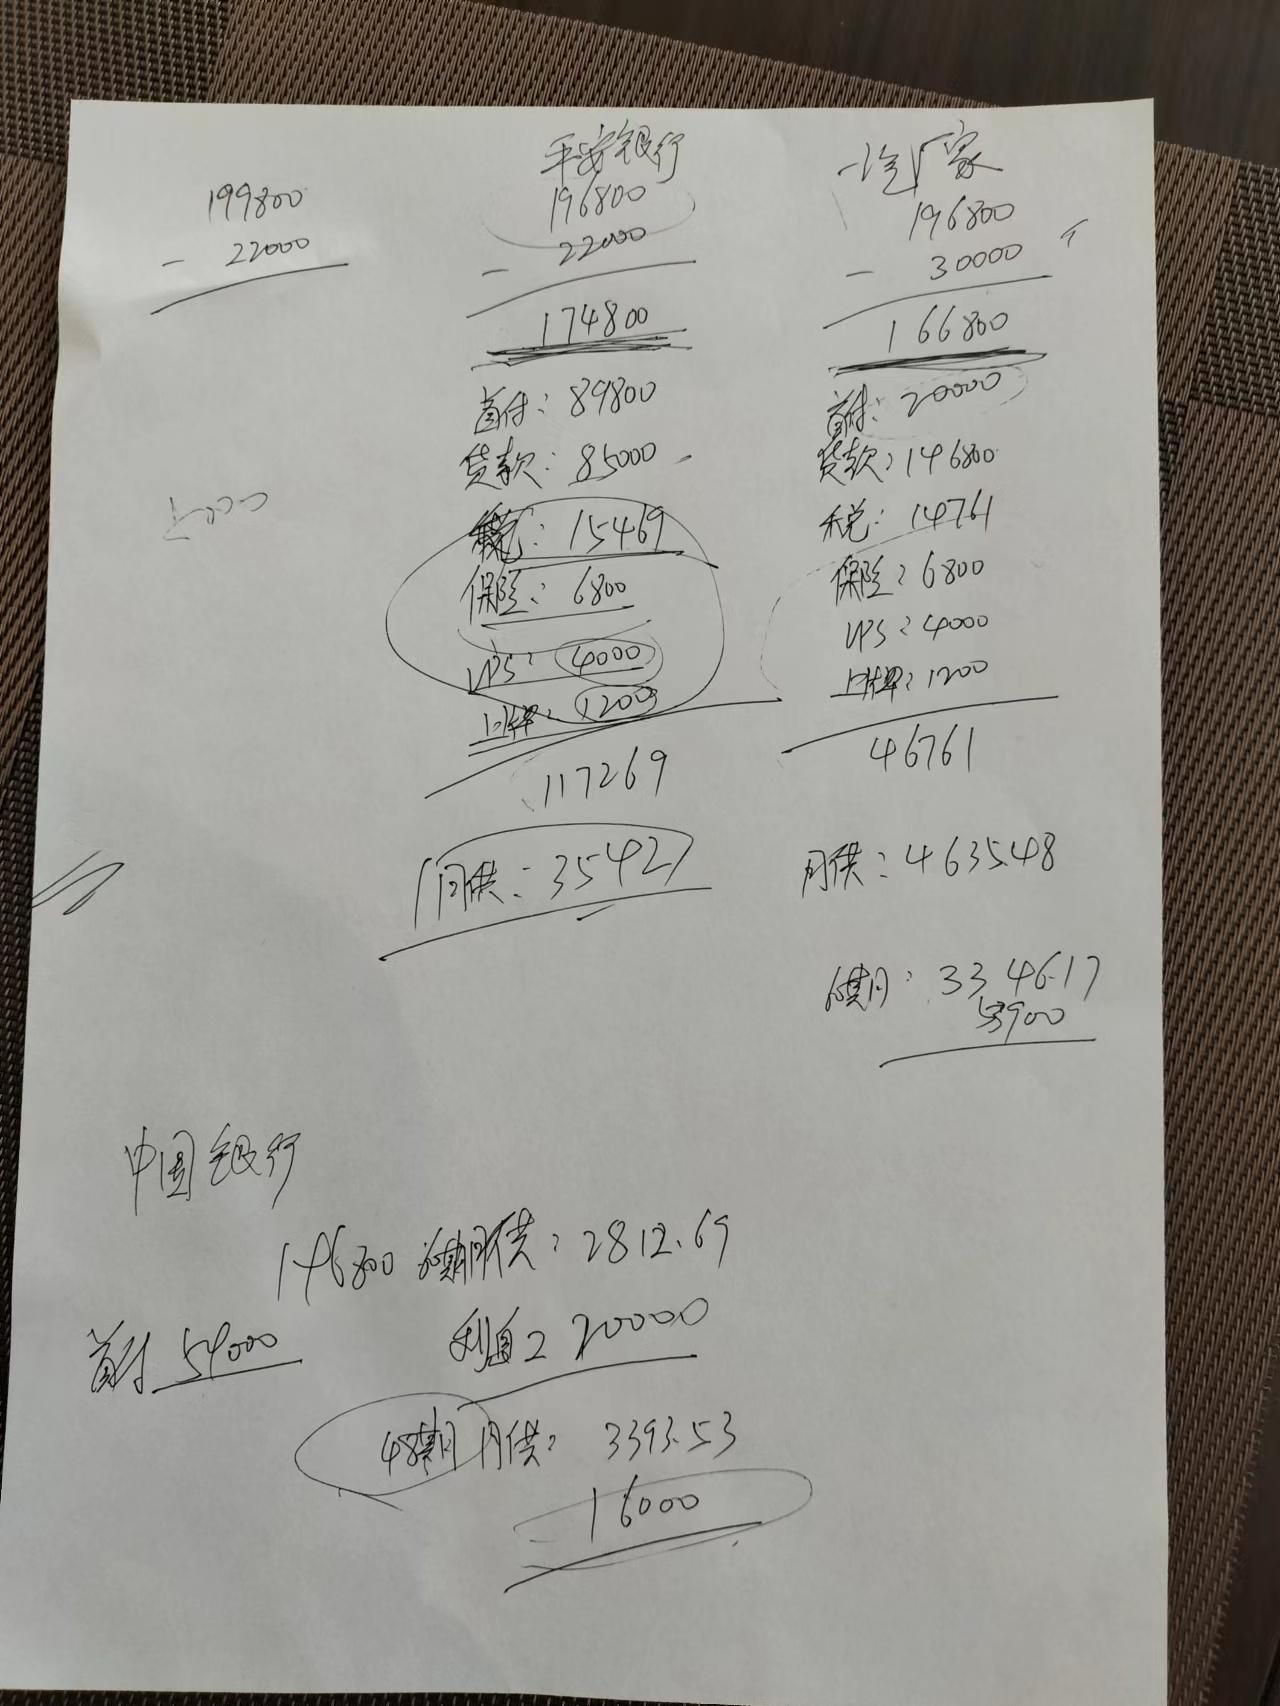 199800
- 22000
平安银行
196800
- 22000
174800
首付: 89800
贷款: 85000
税: 15469
保险: 6800
UPS: 4000
上牌: 1200
117269
月供: 35427
一汽厂家
196800
- 30000
166800
首付: 20000
贷款: 146800
税: 14761
保险: 6800
UPS: 4000
上牌: 1200
46761
月供: 463548
60期月: 3346.17
53900
中国银行
146800 60期月供: 2812.69
首付 54000
利息: 20000
48期月供: 3393.53
16000